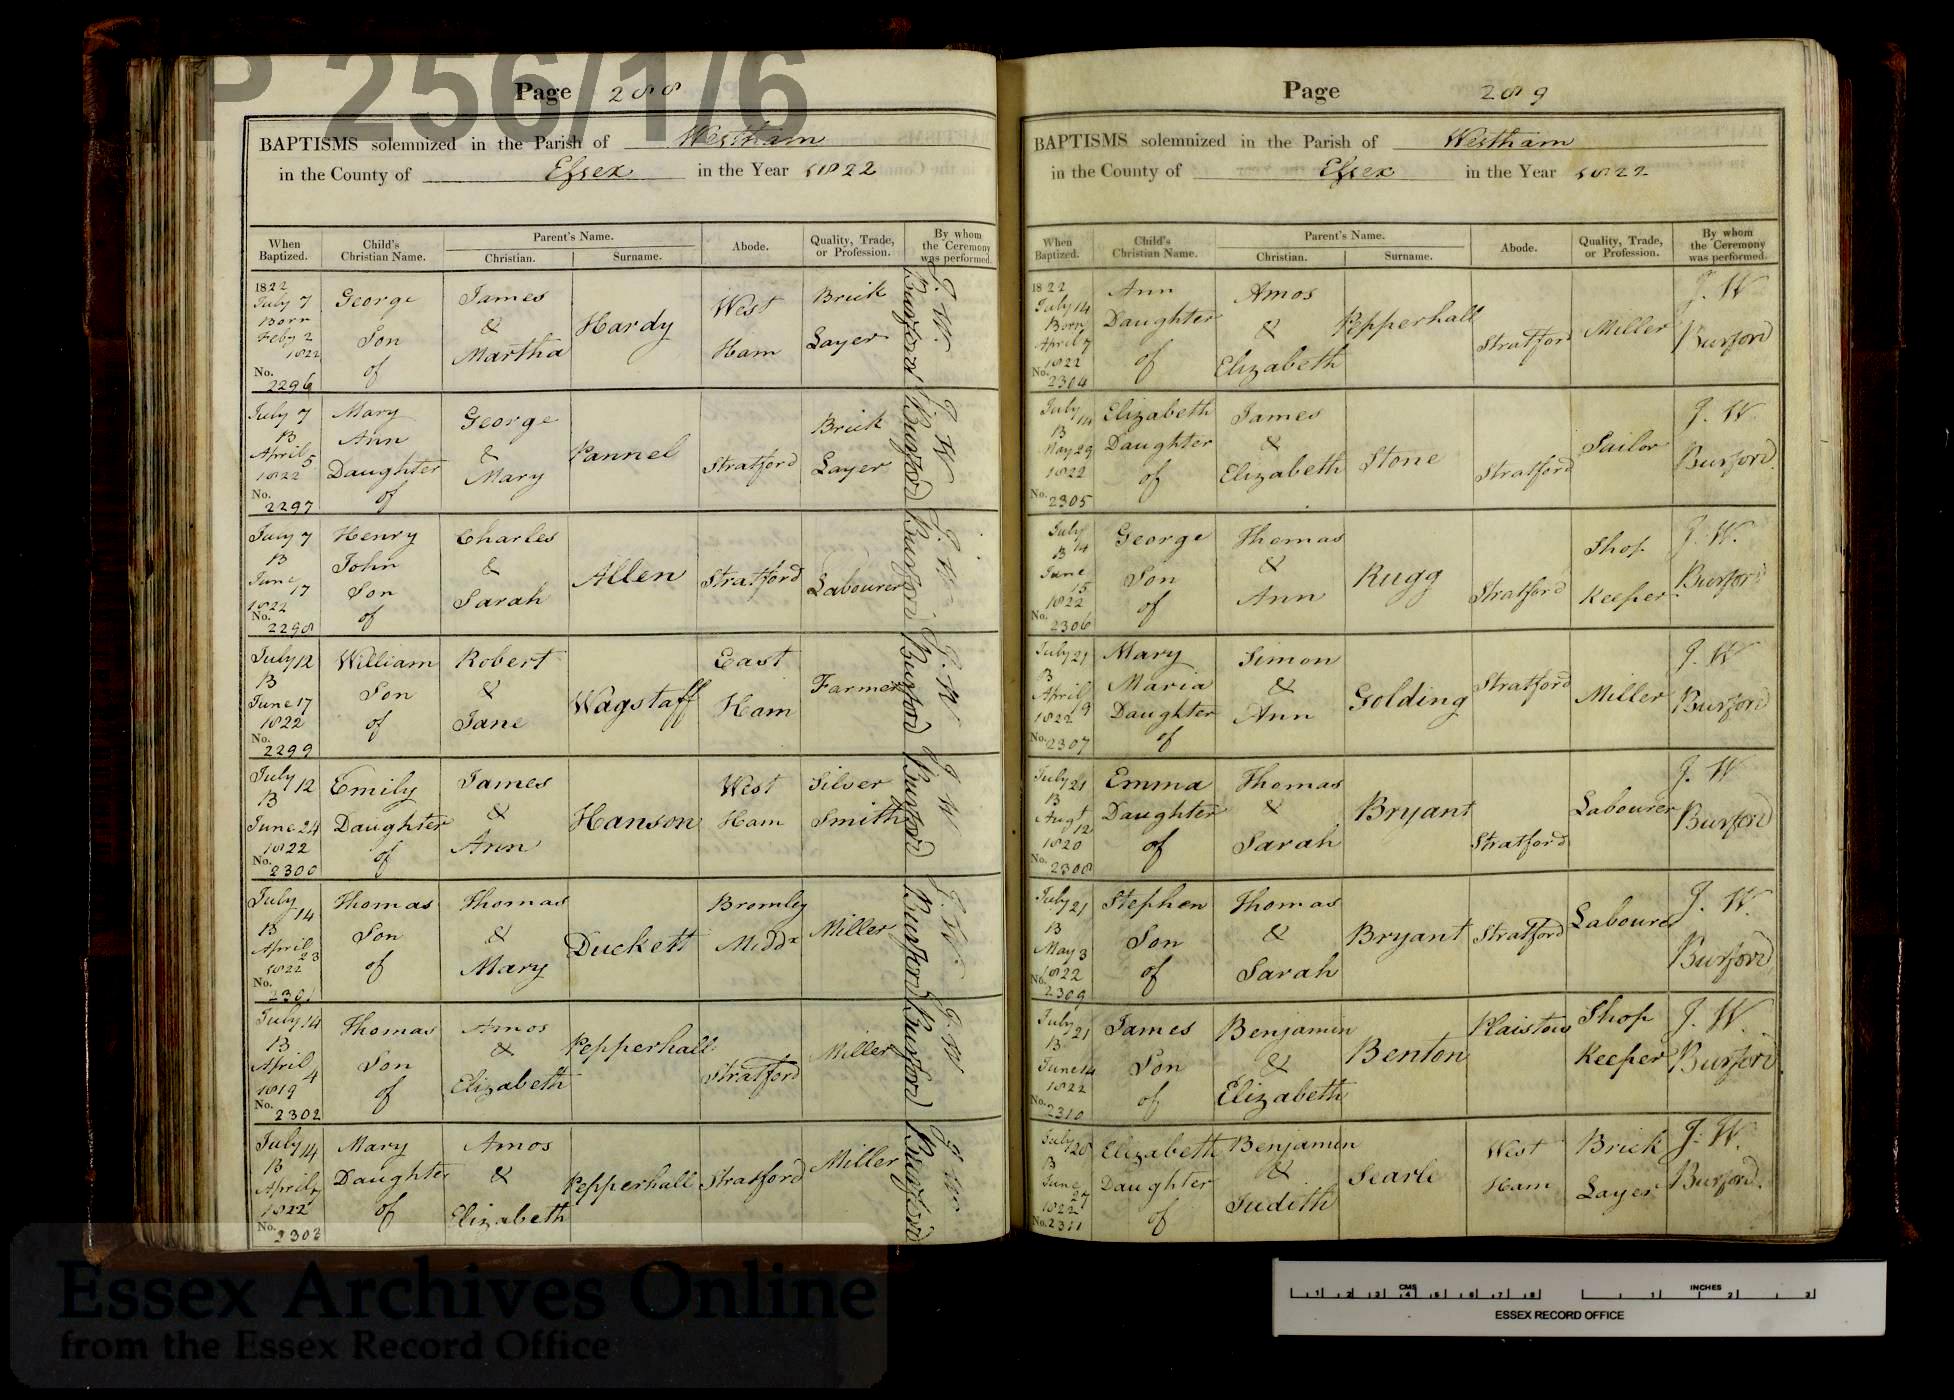 P 256/1/6
Page 288
BAPTISMS solemnized in the Parish of Westham
in the County of Essex in the Year 1822
When Baptized.
Child's Christian Name.
Parent's Name.
Christian.
Surname.
Abode.
Quality, Trade, or Profession.
By whom the Ceremony was performed.
1822
July 7
Born
Feby 2
1822
No.
2296
George
Son
of
James
&
Martha
Hardy
West
Ham
Brick
Layer
J. W.
Burford
July 7
B
April 5
1822
No.
2297
Mary
Ann
Daughter
of
George
&
Mary
Pannel
Stratford
Brick
Layer
J. W
Burford
July 7
B
June 17
1822
No.
2298
Henry
John
Son
of
Charles
&
Sarah
Allen
Stratford
Labourer
J. W.
Burford
July 12
B
June 17
1822
No.
2299
William
Son
of
Robert
&
Jane
Wagstaff
East
Ham
Farmer
J. W
Burford
July 12
B
June 24
1822
No.
2300
Emily
Daughter
of
James
&
Ann
Hanson
West
Ham
Silver
Smith
J W
Burford
July 14
B
April 23
1822
No.
2301
Thomas
Son
of
Thomas
&
Mary
Duckett
Bromley
Middx
Miller
J. W.
Burford
July 14
B
April 4
1819
No.
2302
Thomas
Son
of
Amos
&
Elizabeth
Pepperhall
Stratford
Miller
J. W
Burford
July 14
B
April 7
1822
No.
2303
Mary
Daughter
of
Amos
&
Elizabeth
Pepperhall
Stratford
Miller
J W
Burford
Page 289
BAPTISMS solemnized in the Parish of Westham
in the County of Essex in the Year 1822
When Baptized.
Child's Christian Name.
Parent's Name.
Christian.
Surname.
Abode.
Quality, Trade, or Profession.
By whom the Ceremony was performed.
1822
July 14
Born
April 7
1822
No.
2304
Ann
Daughter
of
Amos
&
Elizabeth
Pepperhall
Stratford
Miller
J. W
Burford
July 14
B
May 29
1822
No.
2305
Elizabeth
Daughter
of
James
&
Elizabeth
Stone
Stratford
Sailor
J. W
Burford
July 14
B
June 15
1822
No.
2306
George
Son
of
Thomas
&
Ann
Rugg
Stratford
Shop
Keeper
J. W.
Burford
July 21
B
April 9
1822
No.
2307
Mary
Maria
Daughter
of
Simon
&
Ann
Golding
Stratford
Miller
J. W
Burford
July 21
B
Augt 12
1820
No.
2308
Emma
Daughter
of
Thomas
&
Sarah
Bryant
Stratford
Labourer
J. W
Burford
July 21
B
May 3
1822
No.
2309
Stephen
Son
of
Thomas
&
Sarah
Bryant
Stratford
Labourer
J. W.
Burford
July 21
B
June 14
1822
No.
2310
James
Son
of
Benjamin
&
Elizabeth
Benton
Plaistow
Shop
Keeper
J. W.
Burford
July 28
B
June 27
1822
No.
2311
Elizabeth
Daughter
of
Benjamin
&
Judith
Searle
West
Ham
Brick
Layer
J. W.
Burford
Essex Archives Online
from the Essex Record Office
CMS
1 2 3 4 5 6 7 8
INCHES
1 2 3
ESSEX RECORD OFFICE